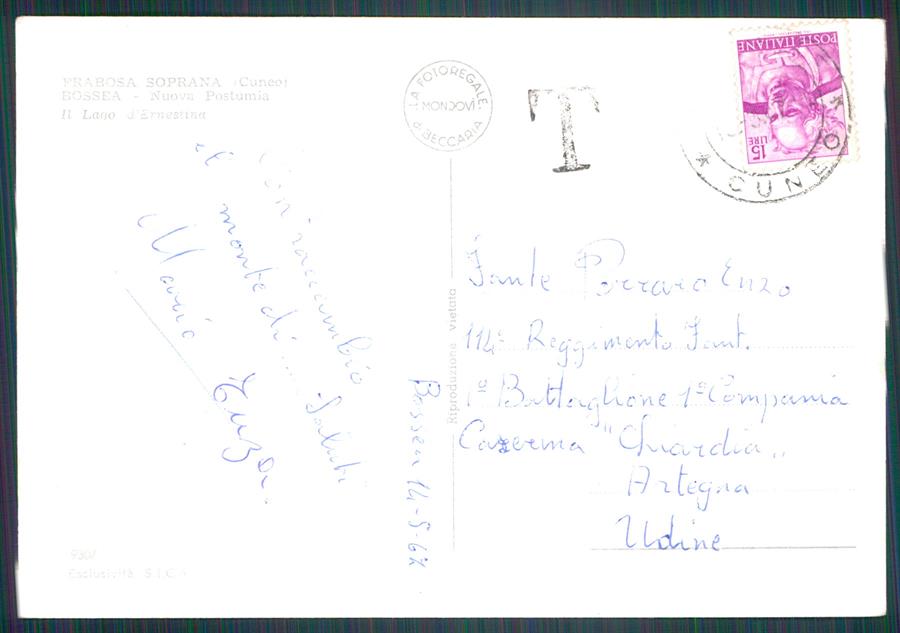 FRABOSA SOPRANA (Cuneo)
BOSSEA - Nuova Postumia
Il Lago d'Ernestina
LA FOTOREGALE
MONDOVÌ
di BECCARIA
T
POSTE ITALIANE
15 LIRE
* CUNEO *
Con raccambio
il monte di... Saluti
Mario Enzo.
Bossea 14-5-67
Riproduzione vietata
Fante Porraro Enzo
114° Reggimento Fant.
1° Battaglione 1ª Compania
Caserma "Chiardia"
Artegna
Udine
9307
Esclusività S.I.C.A